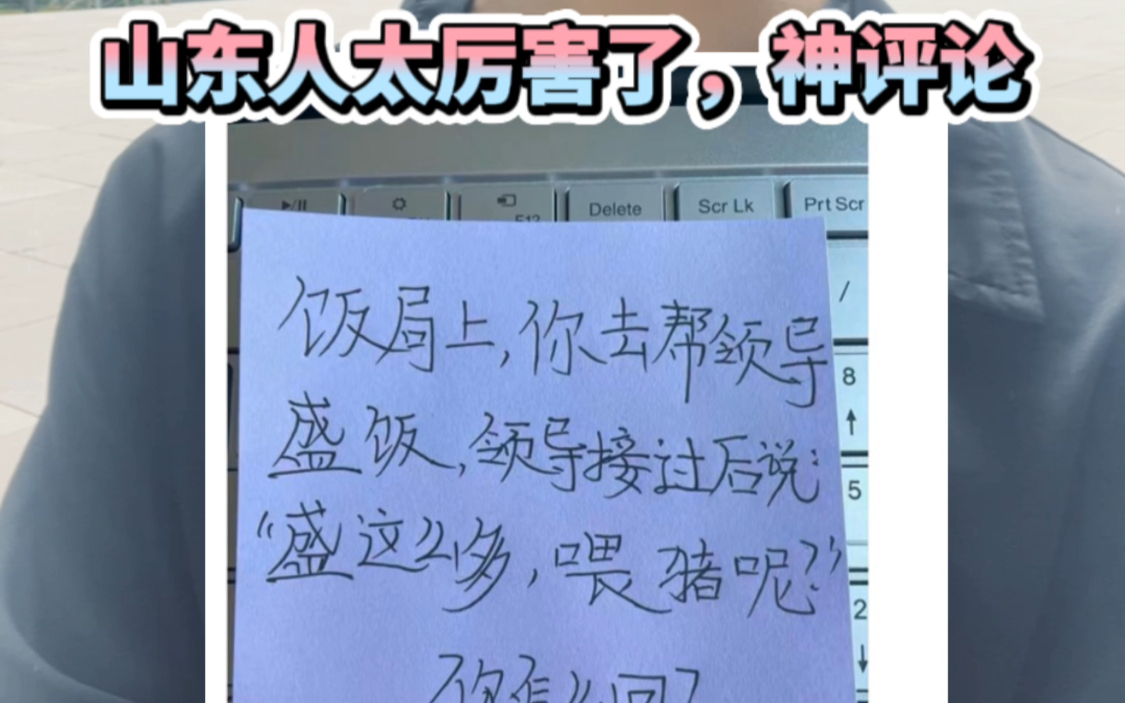 山东人太厉害了，神评论
Delete
Scr Lk
Prt Scr
/
饭局上，你去帮领导
8
盛饭，领导接过后说：
5
"盛这么多，喂猪呢？"
2
你怎么回？